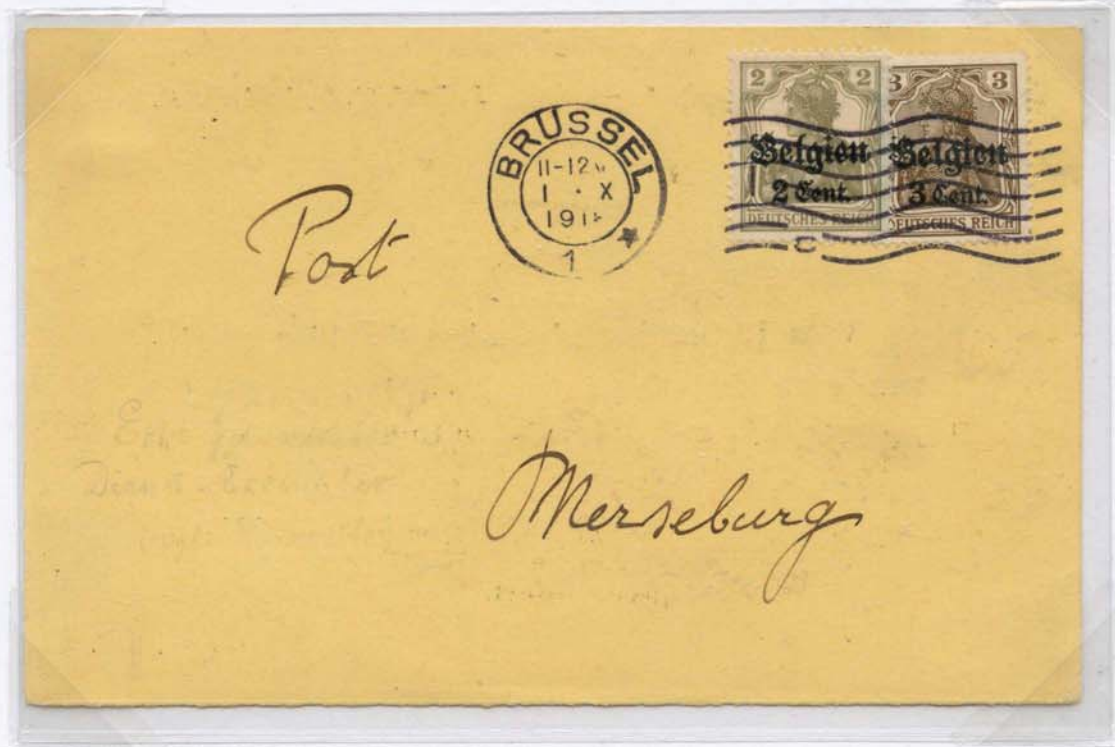 BRÜSSEL
11-12V
1 · X
1
2 2
Belgien
2 Cent.
DEUTSCHES REICH
3 3
Belgien
3 Cent.
DEUTSCHES REICH
C
Post
Merseburg